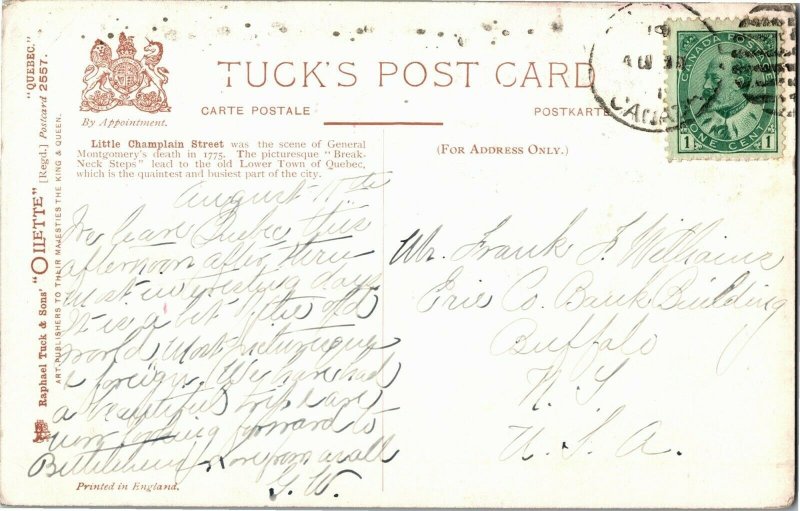 "QUEBEC."
Raphael Tuck & Sons' "OILETTE" [Regd.] Postcard 2557.
ART PUBLISHERS TO THEIR MAJESTIES THE KING & QUEEN.
By Appointment.
TUCK'S POST CARD
CARTE POSTALE
POSTKARTE
Little Champlain Street was the scene of General
Montgomery's death in 1775. The picturesque "Break-
Neck Steps" lead to the old Lower Town of Quebec,
which is the quaintest and busiest part of the city.
(FOR ADDRESS ONLY.)
CANADA POSTAGE
1 ONE CENT 1
CANADA
August
We leave Quebec this
afternoon after three
most interesting days
It is a bit of the old
world, most picturesque
& foreign. We have had
a beautiful trip & are
now looking forward to
Bethlehem & love from us all
G. W.
Mr. Frank F. Williams
Erie Co. Bank Building
Buffalo
N. Y
U. S. A.
Printed in England.